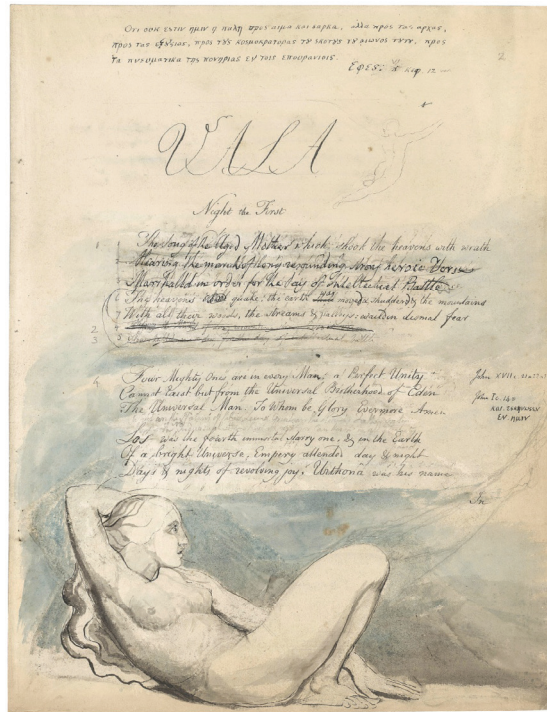 Οτι ουκ εστιν ημιν η παλη προς αιμα και σαρκα, αλλα προς τας αρχας,
προς τας εξουσιας, προς τους κοσμοκρατορας του σκοτους του αιωνος τουτου, προς
τα πνευματικα της πονηριας εν τοις επουρανιοις.
Εφες: κεφ. 12
2
VALA
Night the First
1 The Song of the Aged Mother which shook the heavens with wrath
Hearing the march of long resounding strong heroic Verse
Marshalld in order for the day of Intellectual Battle
6 The heavens quake: the earth moved & shudderd & the mountains
7 With all their woods, the streams & valleys: waild in dismal fear
2
3
4 Four Mighty Ones are in every Man; a Perfect Unity John XVII
Cannot Exist but from the Universal Brotherhood of Eden John I c. 14 v
The Universal Man. To Whom be Glory Evermore Amen και εσκηνωσεν
εν ημιν
Los was the fourth immortal starry one, & in the Earth
Of a bright Universe, Empery attended day & night
Days & nights of revolving joy, Urthona was his name
In